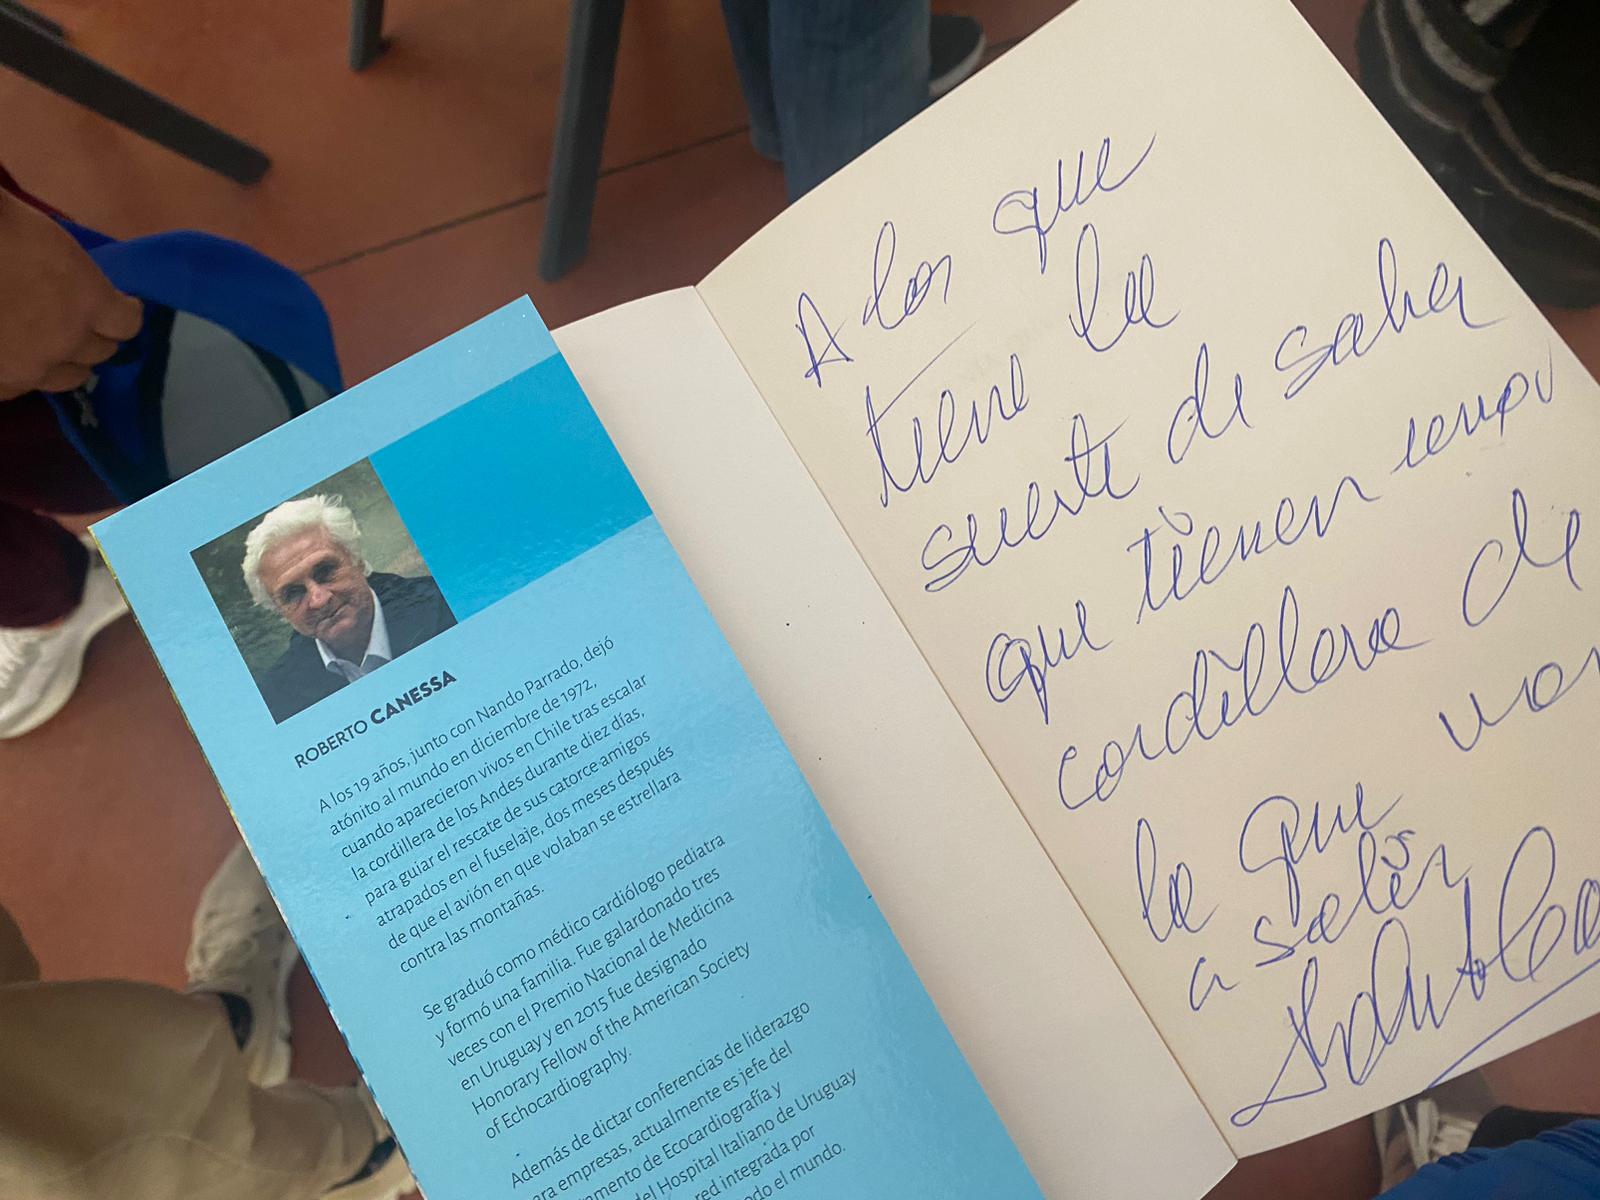 ROBERTO CANESSA
A los 19 años, junto con Nando Parrado, dejó
atónito al mundo en diciembre de 1972,
cuando aparecieron vivos en Chile tras escalar
la cordillera de los Andes durante diez días,
para guiar el rescate de sus catorce amigos
atrapados en el fuselaje, dos meses después
de que el avión en que volaban se estrellara
contra las montañas.
Se graduó como médico cardiólogo pediatra
y formó una familia. Fue galardonado tres
veces con el Premio Nacional de Medicina
en Uruguay y en 2015 fue designado
Honorary Fellow of the American Society
of Echocardiography.
Además de dictar conferencias de liderazgo
para empresas, actualmente es jefe del
de Ecocardiografía y
del Hospital Italiano de Uruguay
red integrada por
el mundo.
A los que
tiene la
suerte de saber
que tienen
cordillera de
la que
a salir